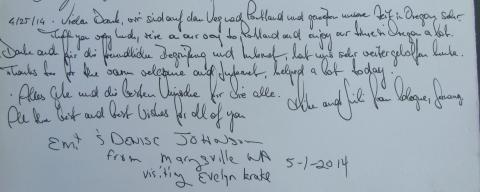 4/25/14 · Vielen Dank, wir sind auf dem Weg nach Portland und genießen unsere Zeit in Oregon sehr.
Thank you very much, we're on our way to Portland and enjoy our time in Oregon a lot.
Danke auch für die freundliche Begrüßung und Internet, hat uns sehr weitergeholfen heute.
Thanks too for the warm welcome and Internet, helped a lot today.
· Alles Gute und die besten Wünsche für Sie alle.
and Juli from Cologne, Germany
All the best and best wishes for all of you
Emt & Denise Johnson
from Marysville WA
visiting Evelyn Krake
5-1-2014